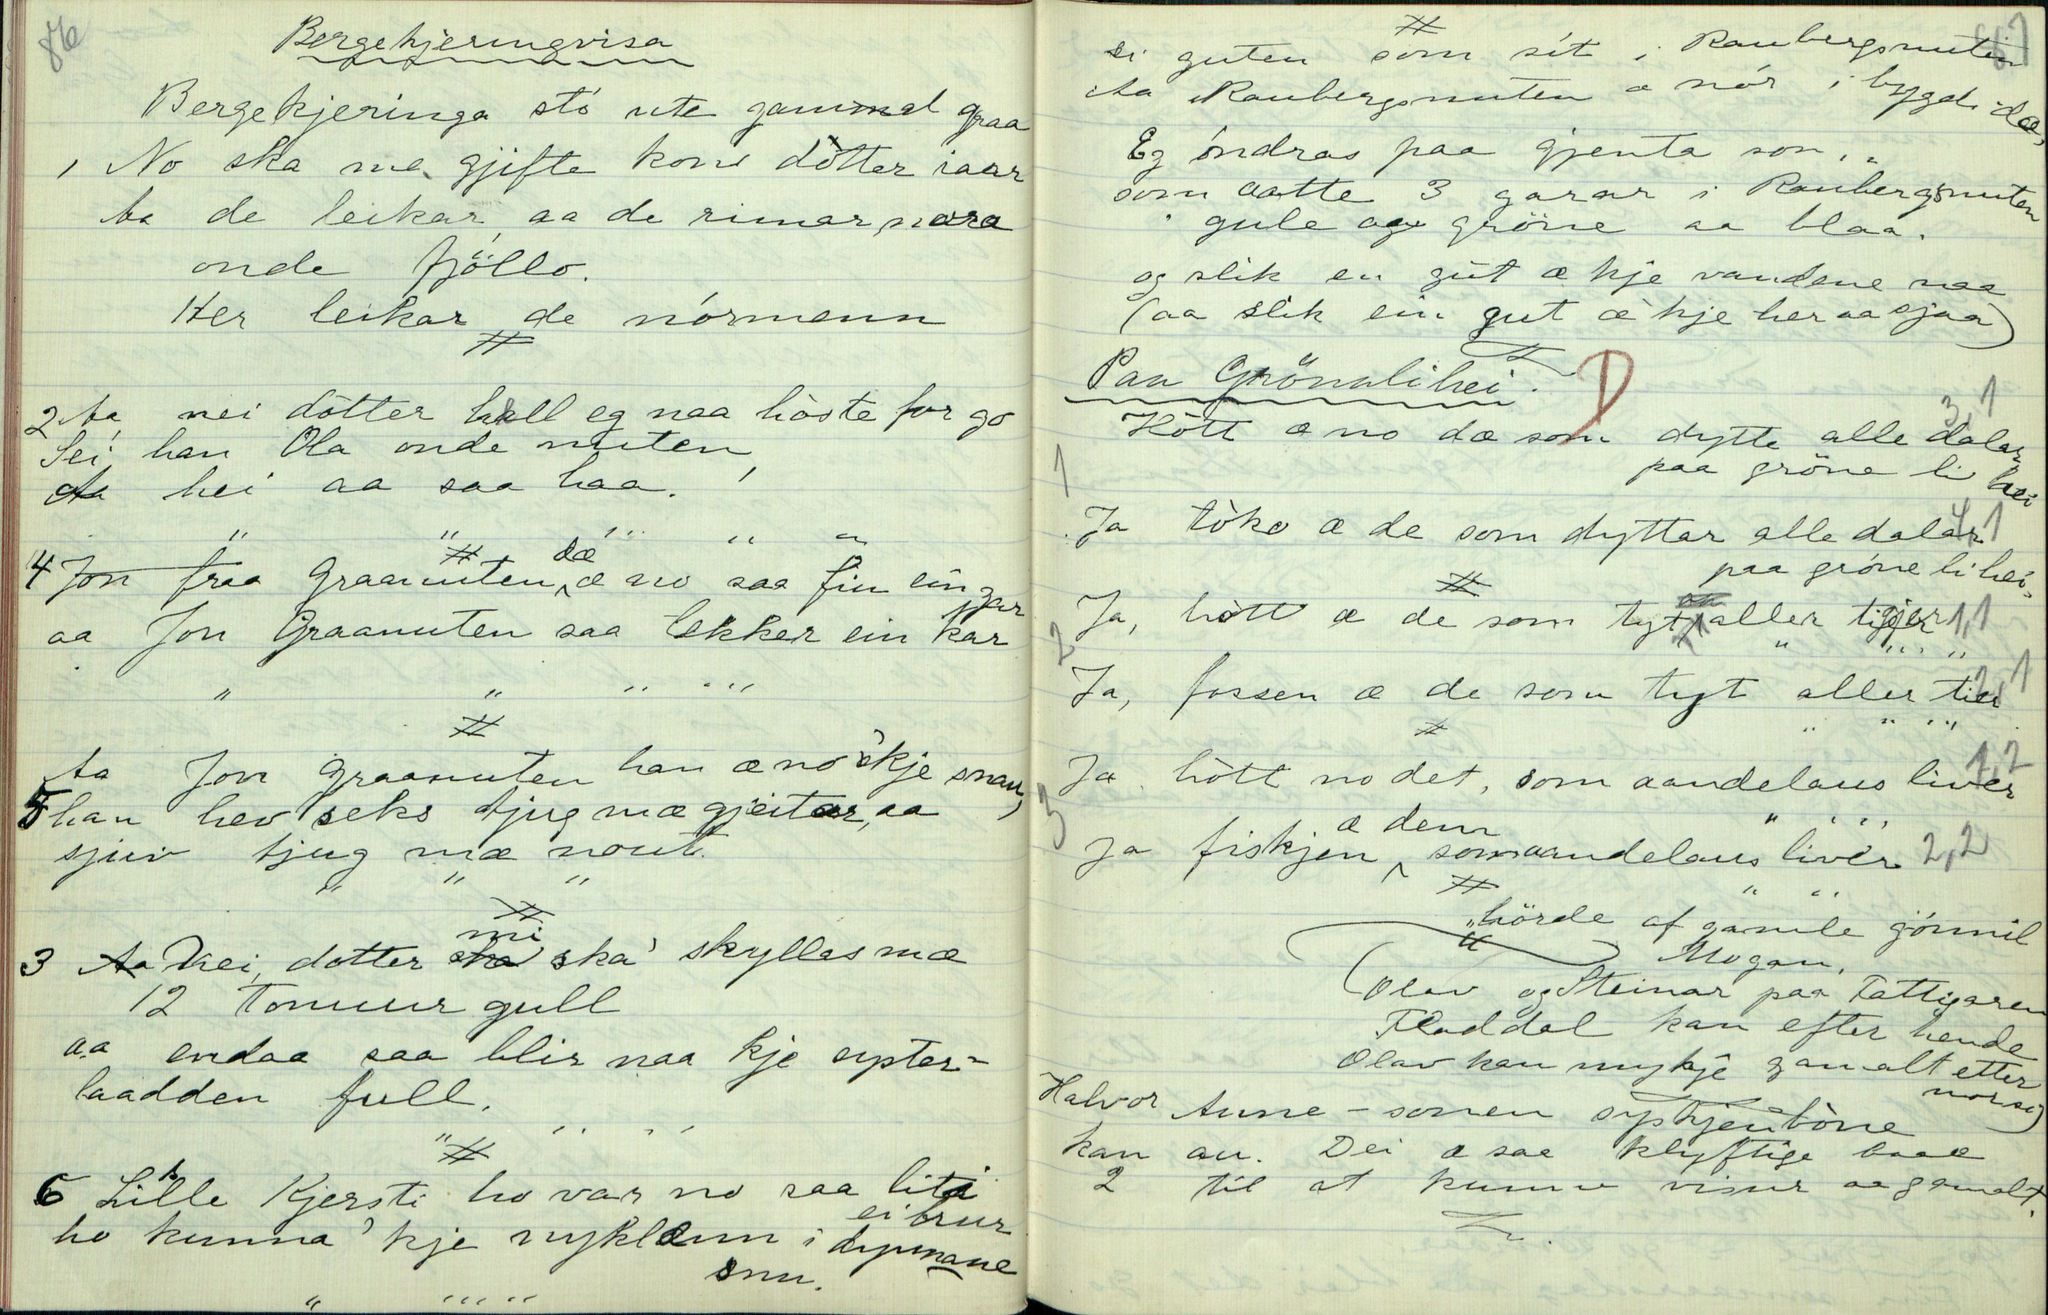 Bergekjeringvisa
Bergekjeringa stó ute gammal graa
1 No ska me gjifte kon dòtter iaar
Aa de leikar, aa de rimar, nora
onde fjöllo.
Her leikar de nórmenn
#
2 Aa nei dòtter hell eg naa hòste for go
Sei han Ola onde nuten,
Aa hei aa saa haa.
" " " " "
#
4 Jon fraa Graanuten, dæ æ no saa fin ein gar
aa Jon Graanuten saa lekker ein kar
" " " "
#
Aa Jon Graanuten han æ no 'kje snau,
5 han hev seks tjug mæ gjeitar, aa
sjuv tjug mæ nout.
" " "
#
3 Aa Nei, dotter mi ska' skyllas mæ
12 Tonnur gull
aa endaa saa blir naa kje epter-
laadden full.
" " "
#
6 Litle Kjersti ho var no saa liti ei brur
ho kunna 'kje nyklenn i dynnane
snu.
" " "
#
Di guten som sit i Raubergsnuten
Aa Raubergsnuten æ nór i bygd-dæ,
Eg óndras paa gjenta son,
som aatte 3 garar i Raubergsnuten
gule aa gröne aa blaa.
og slik en gut æ kje vandene naa
(aa slik ein gut æ kje her aa sjaa)
Paa Grönalihei. D
1 Hött æ no dæ som dytte alle dalar 3,1
paa gröne li hei
Ja tòko æ de som dyttar alle dalar 4,1
paa gröne li hei.
#
2 Ja, hòtt æ de som tyt aller tigjer 1,1
" " "
Ja, fossen æ de som tyt aller tier 2,1
" " "
#
3 Ja hòtt no det, som aandelaus liver 1,2
" " "
Ja fiskjen æ dem som aandelaus livér 2,2
" "
#
hörde af gamle Gónnil
Mogan.
(Olav og Steinar paa Fattigaren
Fladdal kan efter hende
Olav kan mykje gamalt etter
mor si)
Halvor Aune-sonen syskjenbòne
kan au. Dei æ saa klyftige baae
2 til at kunne visur aa gamalt.